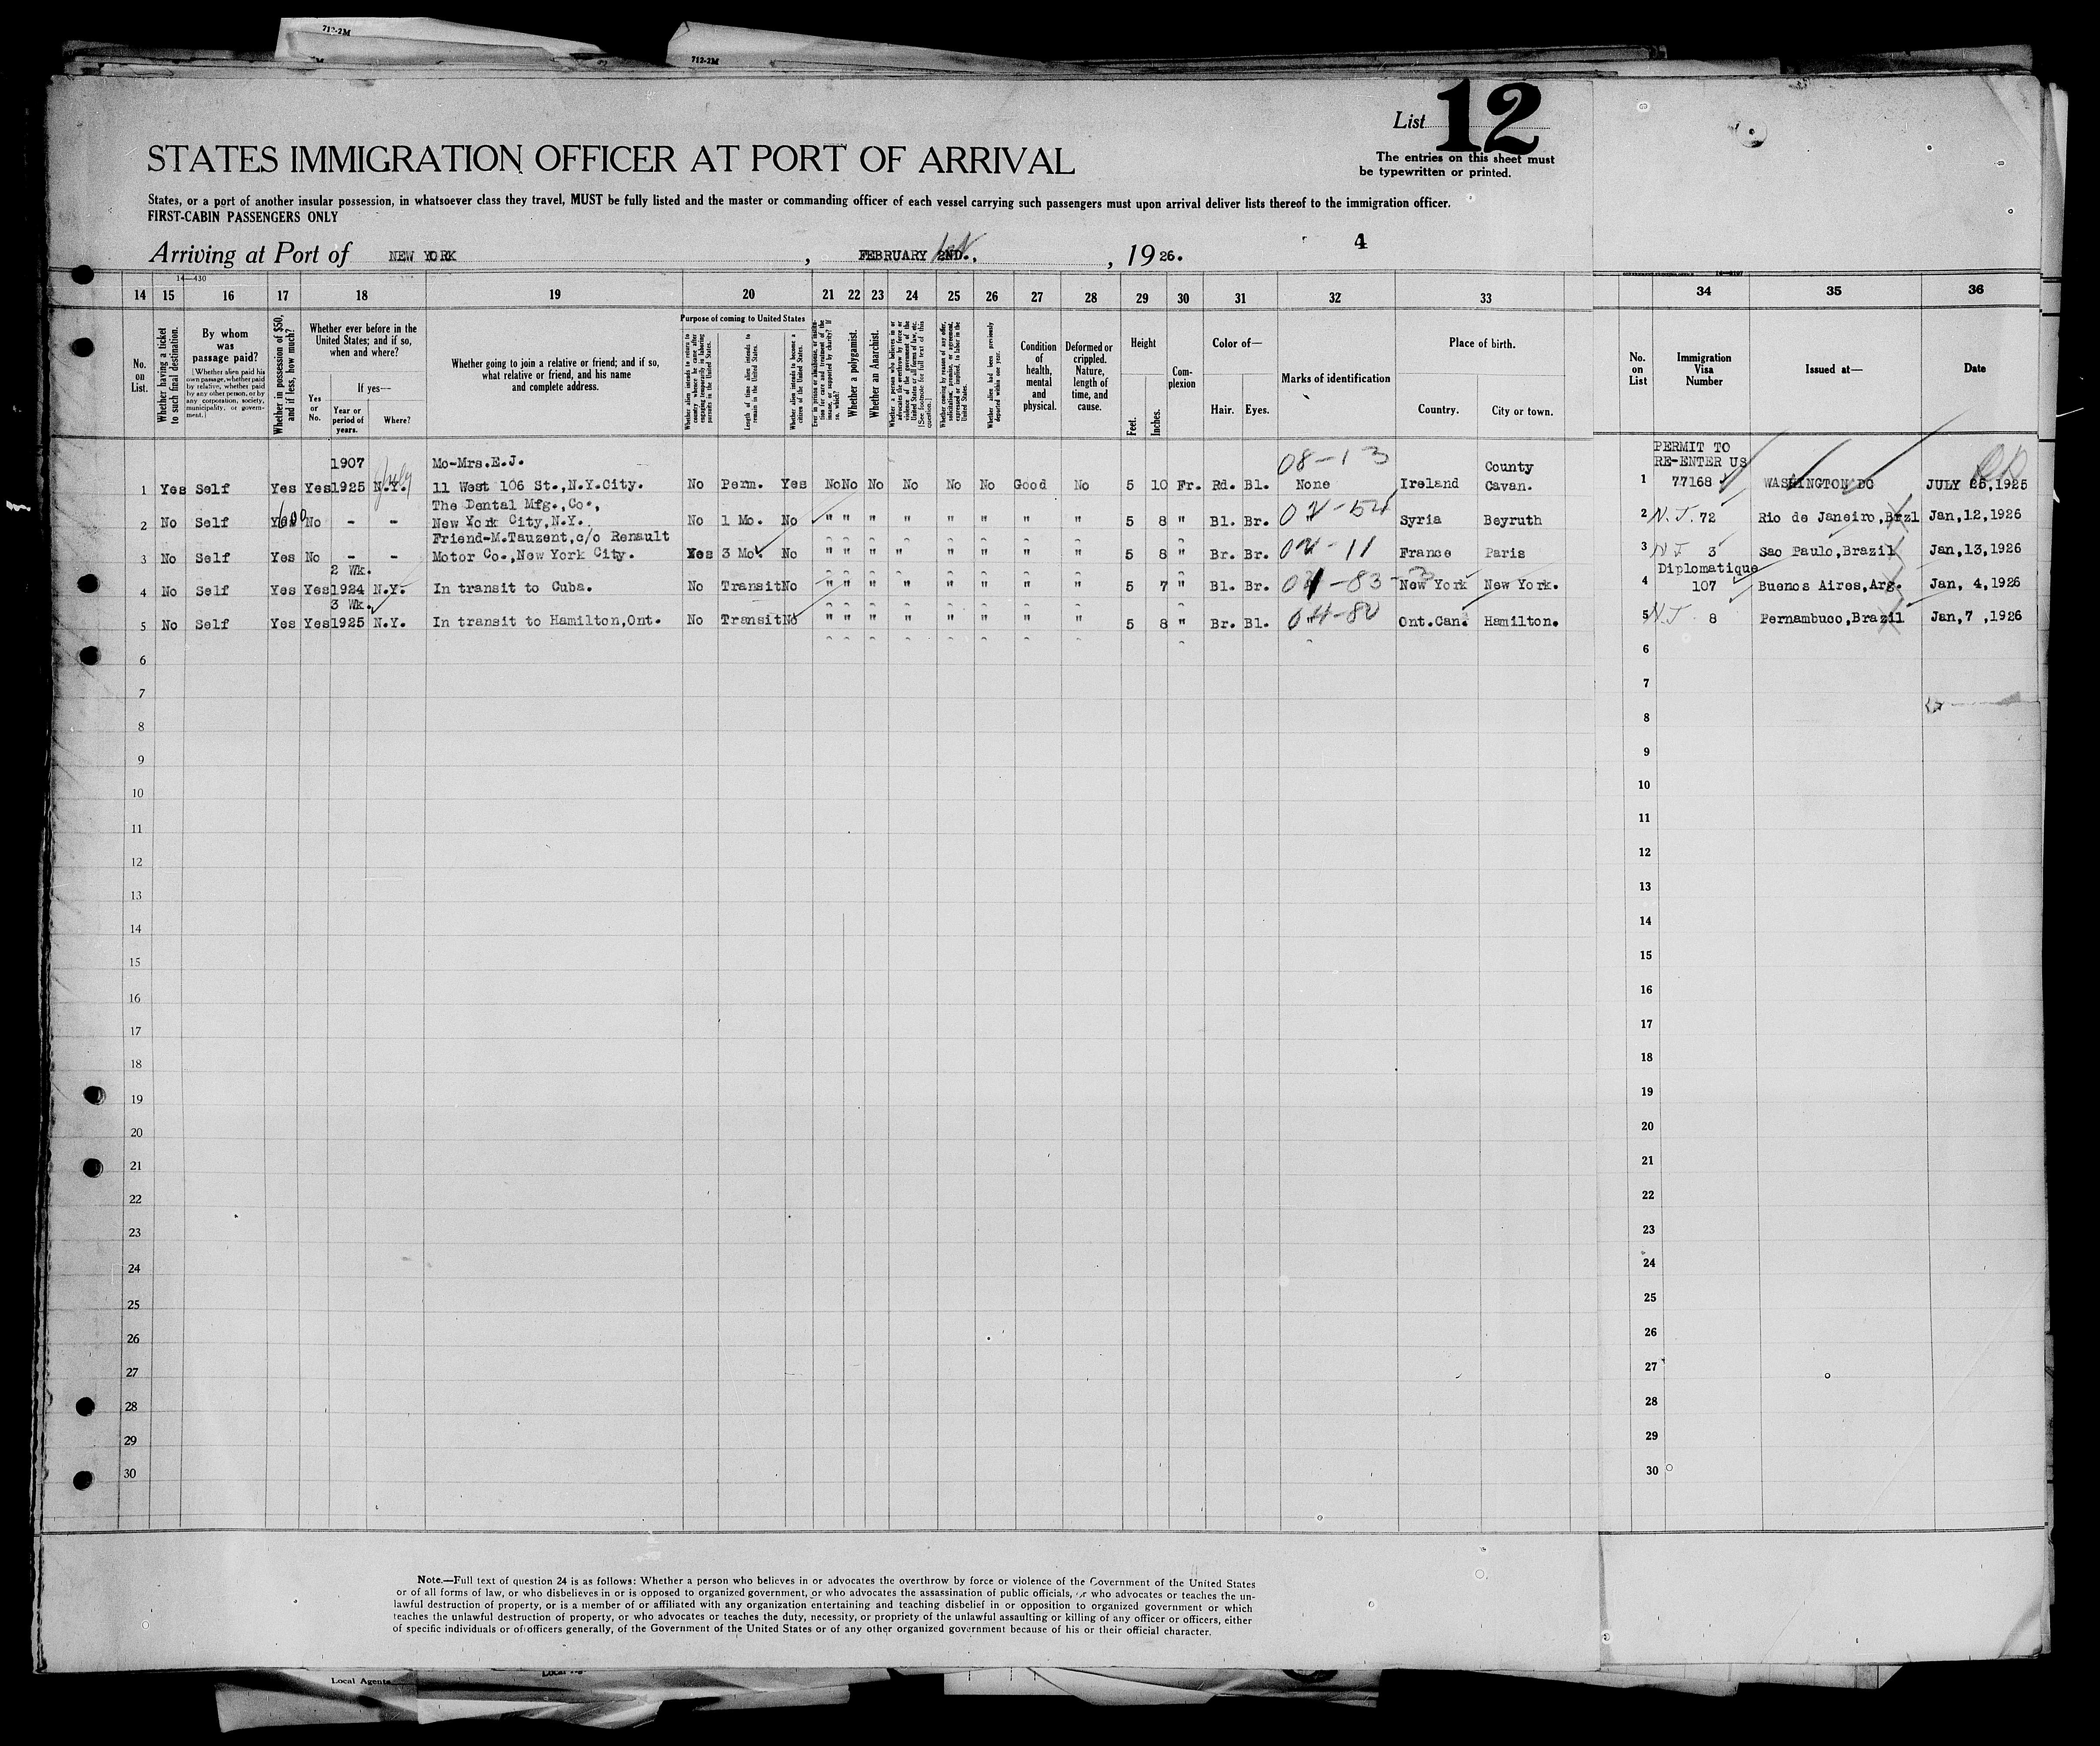 712-2M
712-2M
List 12
STATES IMMIGRATION OFFICER AT PORT OF ARRIVAL
The entries on this sheet must
be typewritten or printed.
States, or a port of another insular possession, in whatsoever class they travel, MUST be fully listed and the master or commanding officer of each vessel carrying such passengers must upon arrival deliver lists thereof to the immigration officer.
FIRST-CABIN PASSENGERS ONLY
4
Arriving at Port of NEW YORK, FEBRUARY 2ND. 1st, 1926.
14—430
14 15 16 17 18 19 20 21 22 23 24 25 26 27 28 29 30 31 32 33 34 35 36
No. on List.
Whether having a ticket to such final destination.
By whom was passage paid?
[Whether alien paid his own passage, whether paid by relative, whether paid by any other person, or by any corporation, society, municipality, or government.]
Whether in possession of $50, and if less, how much?
Whether ever before in the United States; and if so, when and where?
Yes or No.
If yes—
Year or period of years.
Where?
Whether going to join a relative or friend; and if so, what relative or friend, and his name and complete address.
Purpose of coming to United States
Whether alien intends to return to country whence he came after engaging temporarily in laboring pursuits in the United States.
Length of time alien intends to remain in the United States.
Whether alien intends to become a citizen of the United States.
Whether a polygamist.
Whether an Anarchist.
Whether alien had been previously deported within one year.
Condition of health, mental and physical.
Deformed or crippled. Nature, length of time, and cause.
Height
Feet.
Inches.
Complexion
Color of—
Hair. Eyes.
Marks of identification
Place of birth.
Country.
City or town.
No. on List
Immigration Visa Number
Issued at—
Date
1907 Mo-Mrs.E.J. 08-13 County PERMIT TO RE-ENTER US
1 Yes Self Yes Yes 1925 N.Y. July 11 West 106 St.,N.Y.City. No Perm. Yes No No No No No No Good No 5 10 Fr. Rd. Bl. None Ireland Cavan. 1 77168 WASHINGTON DC JULY 25,1925
The Dental Mfg.,Co.,
2 No Self Yes 600 No - - New York City,N.Y. No 1 Mo. No " " " " " " " " 5 8 " Bl. Br. " 02-54 Syria Beyruth 2 N.I. 72 Rio de Janeiro,Brzl Jan,12,1926
Friend-M.Tauzent,c/o Renault
3 No Self Yes No - - Motor Co.,New York City. Yes 3 Mo. No " " " " " " " " 5 8 " Br. Br. 02-11 France Paris 3 N I 3 Sao Paulo,Brazil Jan,13,1926
2 Wk. Diplomatique
4 No Self Yes Yes 1924 N.Y. In transit to Cuba. No Transit No " " " " " " " " 5 7 " Bl. Br. New York New York. 4 107 Buenos Aires,Arg. Jan, 4,1926
3 Wk.
5 No Self Yes Yes 1925 N.Y. In transit to Hamilton,Ont. No Transit No " " " " " " " " 5 8 " Br. Bl. 04-80 Ont.Can. Hamilton. 5 N.I. 8 Pernambuco,Brazil Jan,7 ,1926
6 6
7 7
8 8
9 9
10 10
11 11
12 12
13 13
14 14
15 15
16 16
17 17
18 18
19 19
20 20
21 21
22 22
23 23
24 24
25 25
26 26
27 27
28 28
29 29
30 30
Note.—Full text of question 24 is as follows: Whether a person who believes in or advocates the overthrow by force or violence of the Government of the United States
or of all forms of law, or who disbelieves in or is opposed to organized government, or who advocates the assassination of public officials, or who advocates or teaches the un-
lawful destruction of property, or is a member of or affiliated with any organization entertaining and teaching disbelief in or opposition to organized government or which
teaches the unlawful destruction of property, or who advocates or teaches the duty, necessity, or propriety of the unlawful assaulting or killing of any officer or officers, either
of specific individuals or of officers generally, of the Government of the United States or of any other organized government because of his or their official character.
Local Agents